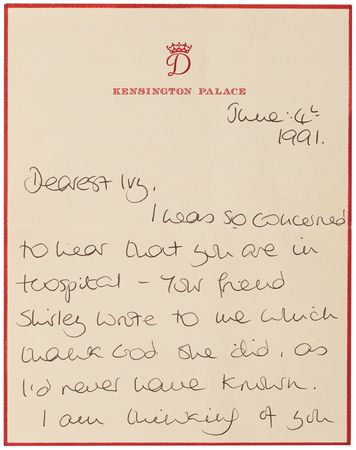 D
KENSINGTON PALACE
June: 4th
1991.
Dearest Ivy,
I was so concerned
to hear that you are in
hospital - Your friend
Shirley wrote to me which
thank God she did, as
I'd never have known.
I am thinking of you